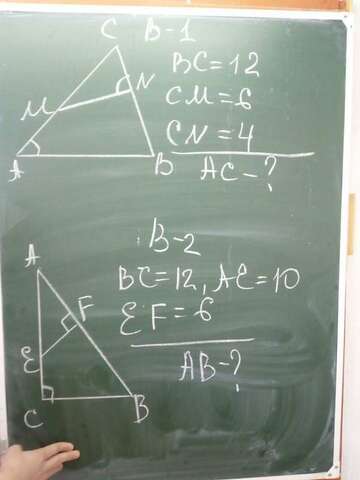 C B-1
BC=12
N
CM=6
M
CN=4
A B
AC-?
B-2
A
BC=12, AE=10
F
EF=6
E
AB-?
C B